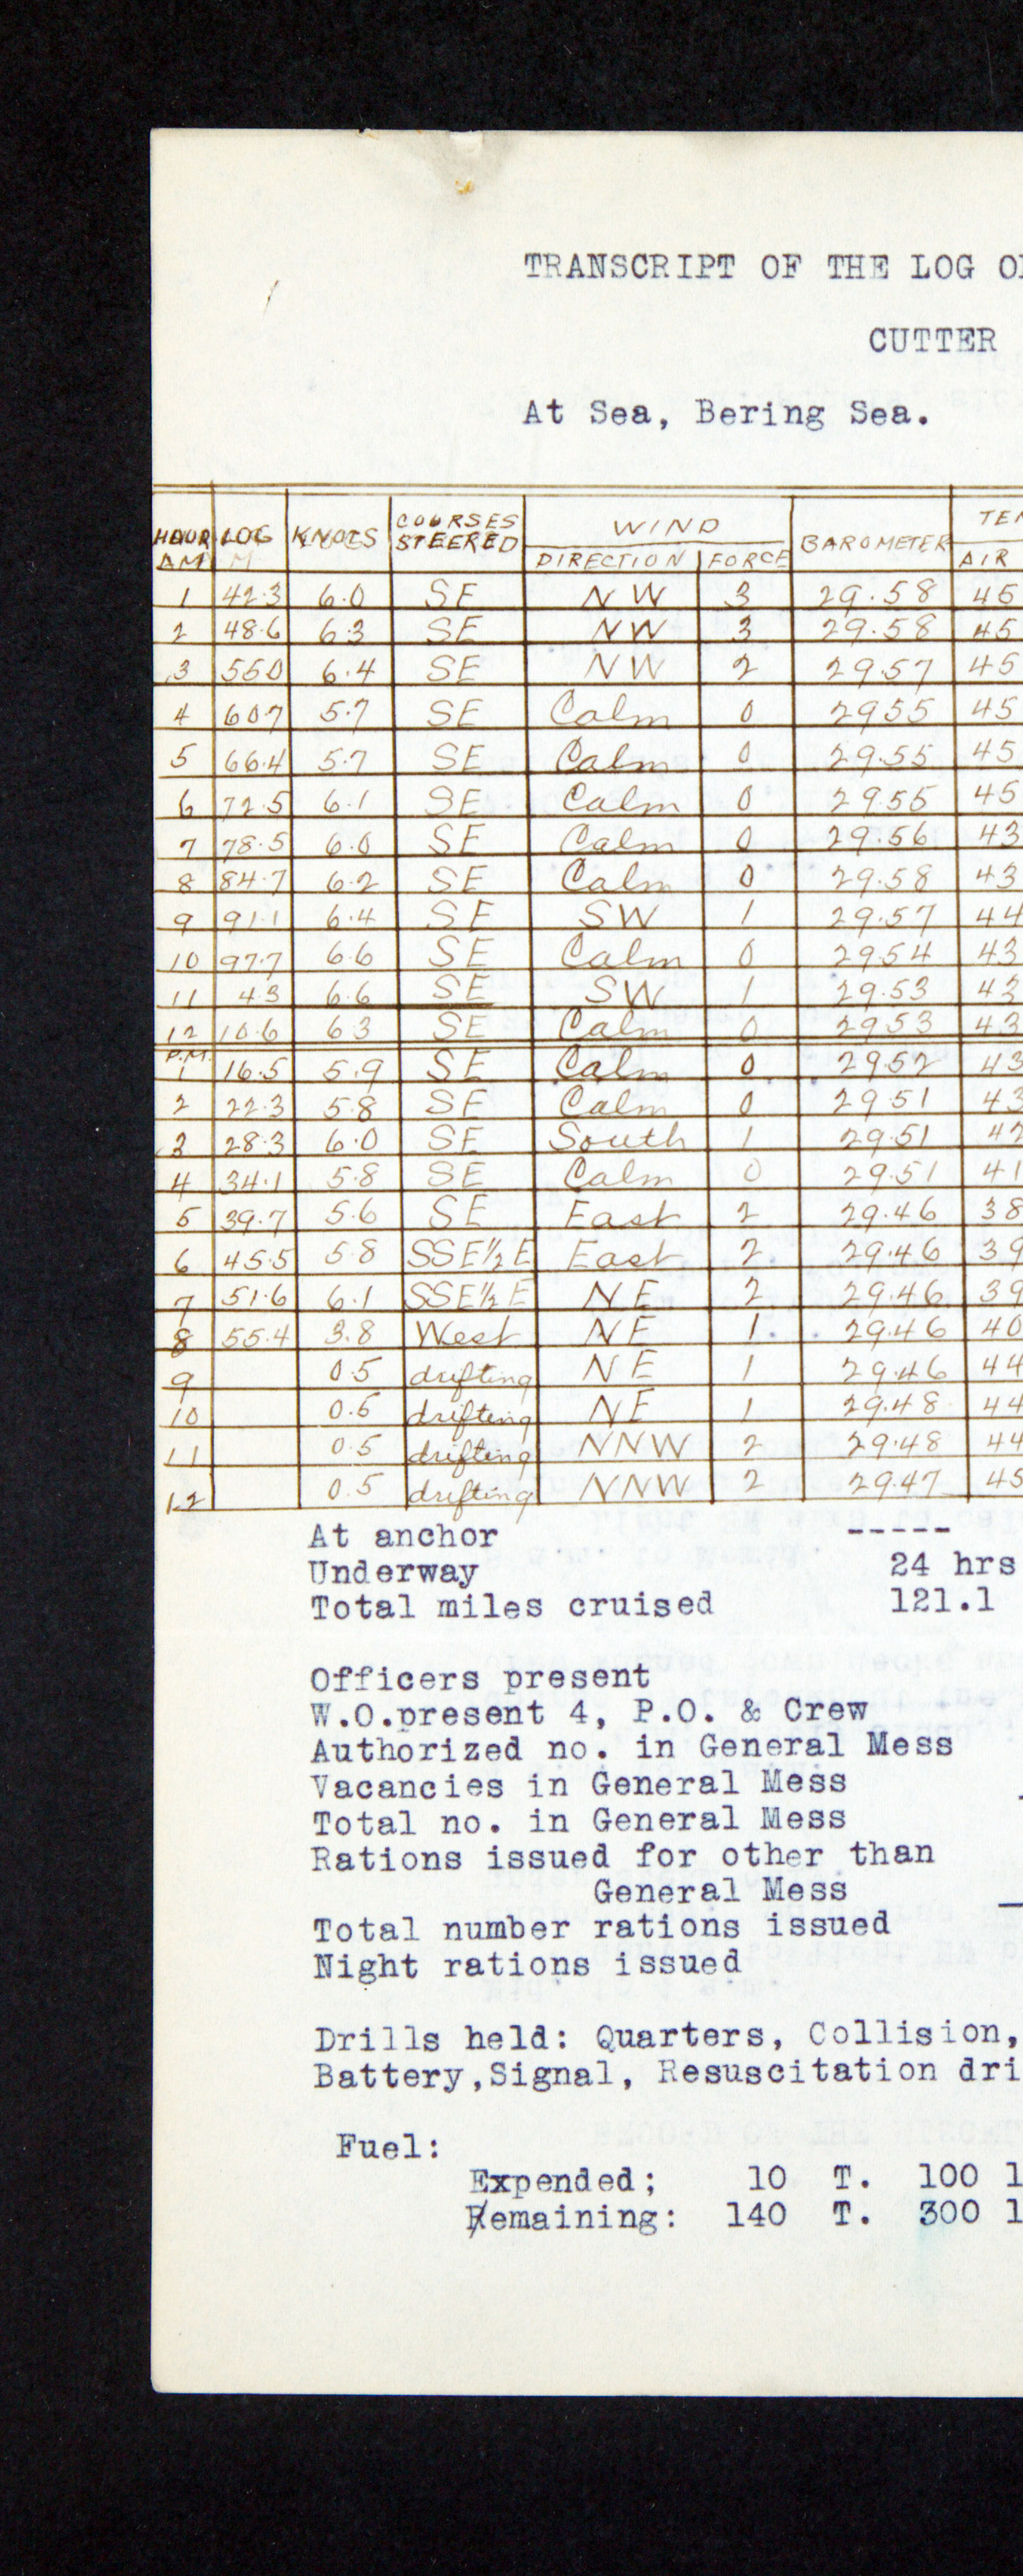 TRANSCRIPT OF THE LOG O
CUTTER
At Sea, Bering Sea.
HOUR LOG KNOTS COURSES STEERED WIND BAROMETER TE
AM DIRECTION FORCE AIR
1 42.3 6.0 SE NW 3 29.58 45
2 48.6 6.3 SE NW 3 29.58 45
3 550 6.4 SE NW 2 29.57 45
4 607 5.7 SE Calm 0 2955 45
5 66.4 5.7 SE Calm 0 29.55 45
6 72.5 6.1 SE Calm 0 29.55 45
7 78.5 6.0 SE Calm 0 29.56 43
8 84.7 6.2 SE Calm 0 29.58 43
9 91.1 6.4 SE SW 1 29.57 44
10 97.7 6.6 SE Calm 0 29.54 43
11 4.3 6.6 SE SW 1 29.53 43
12 10.6 6.3 SE Calm 0 29.53 43
P.M.
1 16.5 5.9 SE Calm 0 29.52 43
2 22.3 5.8 SE Calm 0 29.51 43
3 28.3 6.0 SE South 1 29.51 42
4 34.1 5.8 SE Calm 0 29.51 41
5 39.7 5.6 SE East 2 29.46 38
6 45.5 5.8 SSE½E East 2 29.46 39
7 51.6 6.1 SSE½E NE 2 29.46 39
8 55.4 3.8 West NE 1 29.46 40
9 0.5 drifting NE 1 29.46 44
10 0.5 drifting NE 1 29.48 44
11 0.5 drifting NNW 2 29.48 44
12 0.5 drifting NNW 2 29.47 45
At anchor -----
Underway 24 hrs
Total miles cruised 121.1
Officers present
W.O.present 4, P.O. & Crew
Authorized no. in General Mess
Vacancies in General Mess
Total no. in General Mess
Rations issued for other than
General Mess
Total number rations issued
Night rations issued
Drills held: Quarters, Collision,
Battery,Signal, Resuscitation dri
Fuel:
Expended; 10 T. 100 l
Remaining: 140 T. 300 l